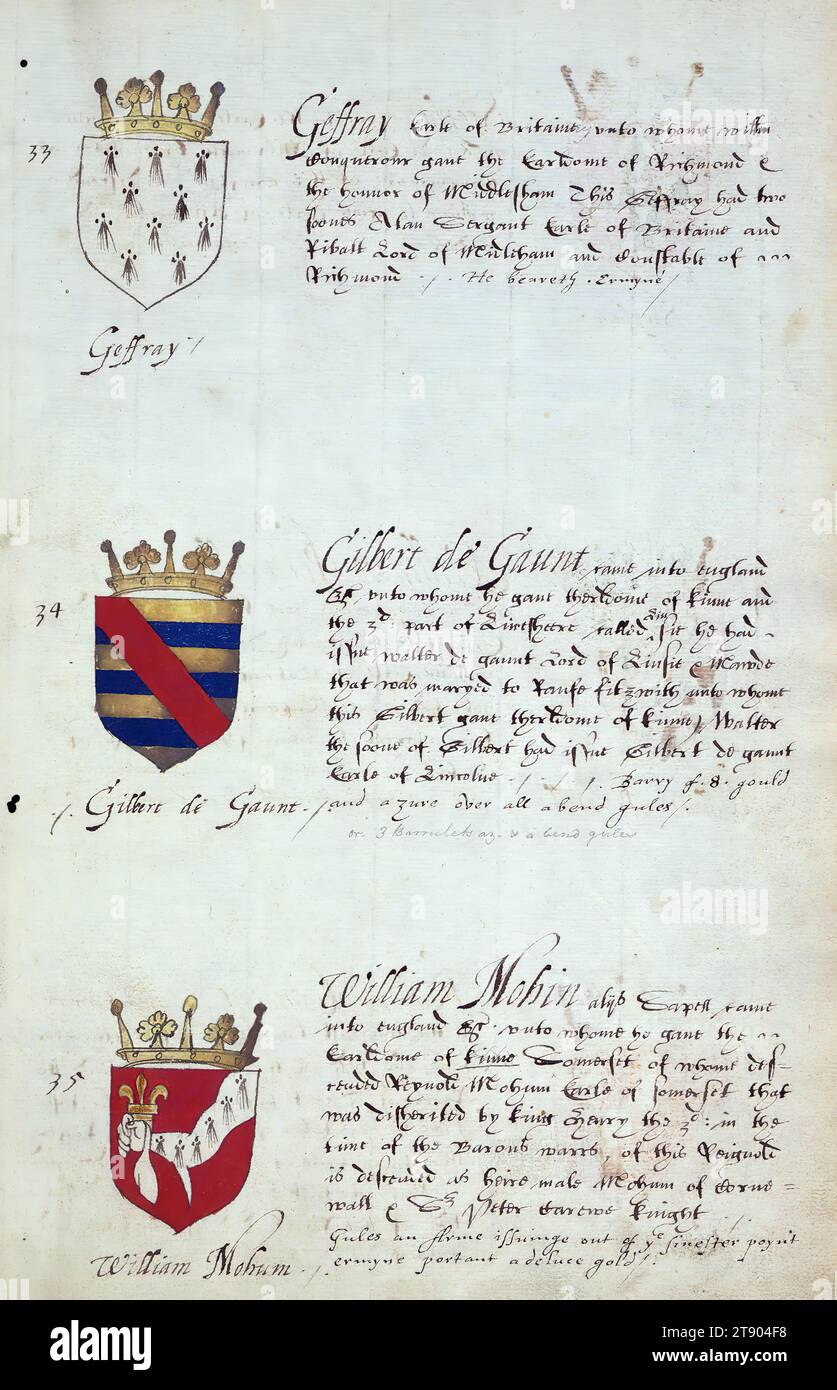 33
Geffray Earle of Britaine unto whome willm
Conquerour gave the Earldome of Richmond &
the honnor of Middlesham This Geffray had two
soones Alan Sergant Earle of Britaine and
Ribalt Lord of Midleham and Constable of
Richmond ./. He beareth . Ermyne /
Geffray /
34
Gilbert de Gaunt came into england
&c unto whome he gave therldome of kime and
the 3d: part of Lincsheere called Linsie he had
issue walter de gaunt Lord of Linsie & Mawde
that was maryed to Raufe fitzwith unto whome
this Gilbert gave therldome of kime / Walter
the soone of Gilbert had issue Gilbert de gaunt
Earle of Lincolne . / . / . / Barry of .8. gould
/. Gilbert de Gaunt . / and azure over all a bend gules /.
or. 3 Barrulets az. & a bend gules
35
William Mohin alijs Sapell came
into england &c. unto whome he gave the
Earldome of kime Somerset of whome des-
cended Reynold Mohum Earle of somerset that
was disherited by king Henry the 3d: in the
time of the Barons warrs, of this Reignold
is descened as heire male Mohum of Corne-
wall & Sr Peter Carewe knight
Gules an Arme issuinge out of ye sinester poynt
ermyne portant a deluce gold /.
William Mohum . /
alamy
Image ID: 2T904F8
www.alamy.com